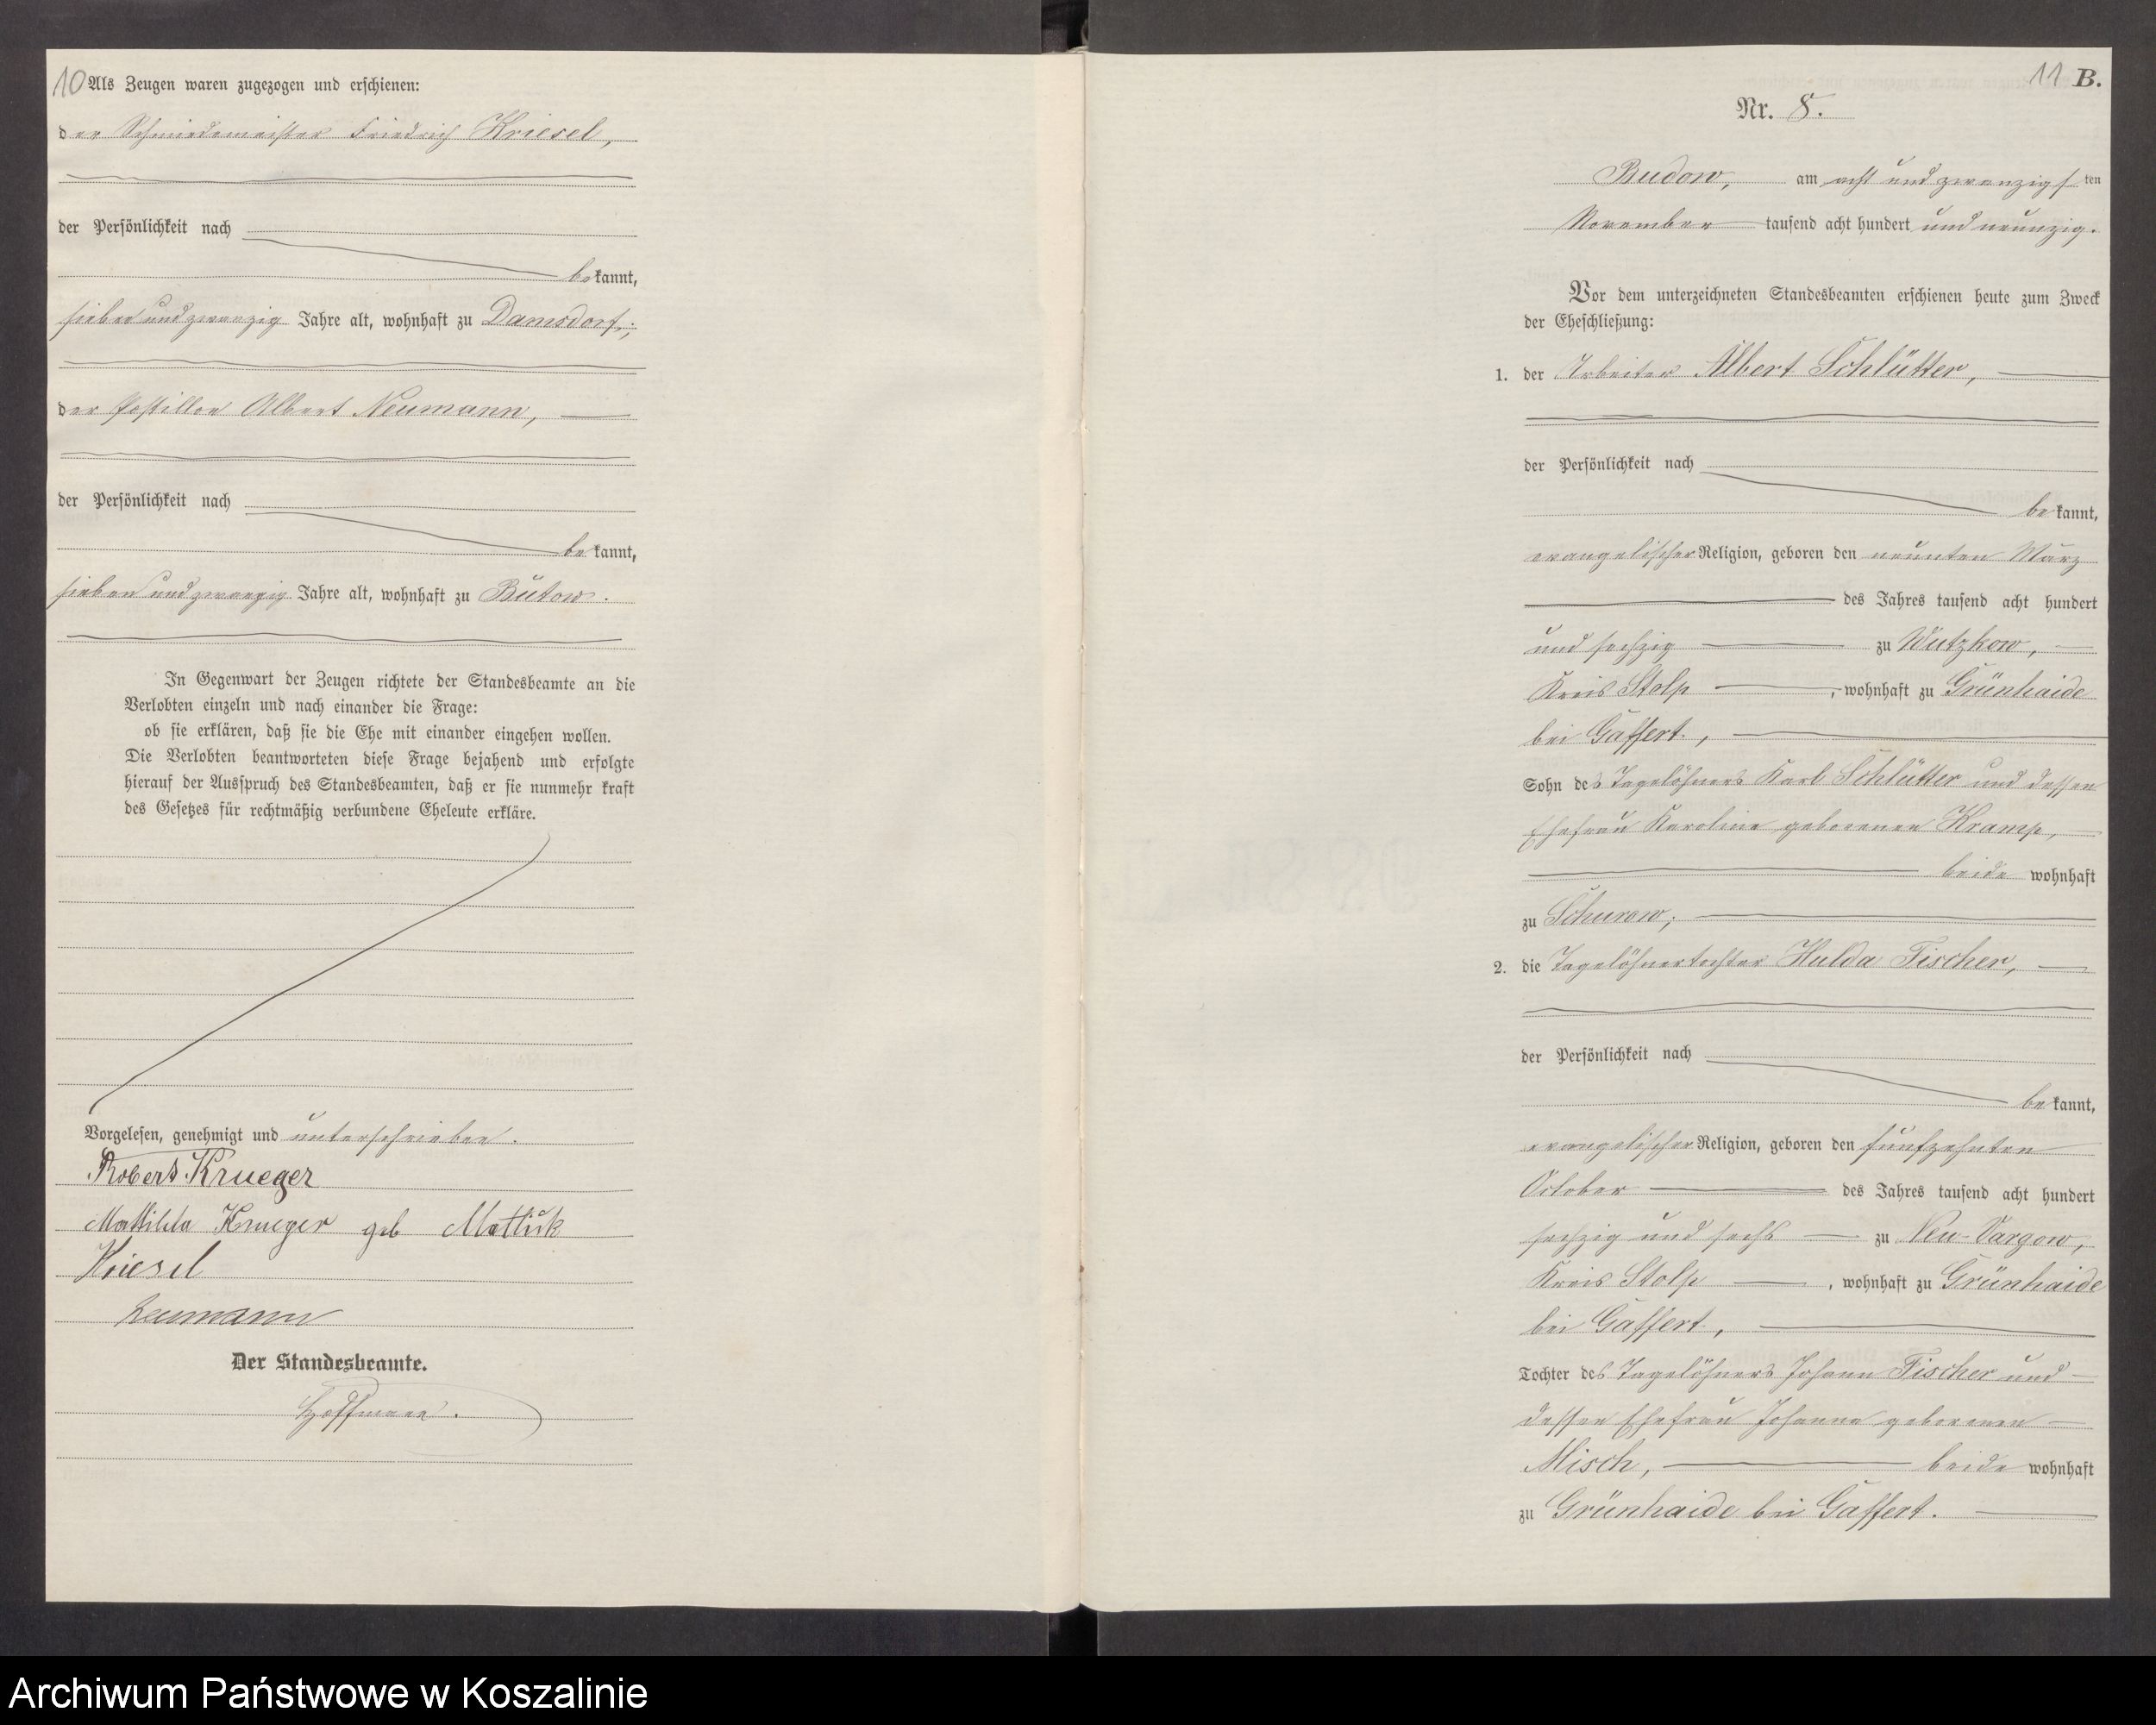 10 Als Zeugen waren zugezogen und erschienen:
der Schmiedemeister Friedrich Kriesel,
der Persönlichkeit nach
bekannt,
sieben und zwanzig Jahre alt, wohnhaft zu Damsdorf;
der Postillon Albert Neumann,
der Persönlichkeit nach
bekannt,
sieben und zwanzig Jahre alt, wohnhaft zu Bütow.
In Gegenwart der Zeugen richtete der Standesbeamte an die
Verlobten einzeln und nach einander die Frage:
ob sie erklären, daß sie die Ehe mit einander eingehen wollen.
Die Verlobten beantworteten diese Frage bejahend und erfolgte
hierauf der Ausspruch des Standesbeamten, daß er sie nunmehr kraft
des Gesetzes für rechtmäßig verbundene Eheleute erkläre.
Vorgelesen, genehmigt und unterschrieben.
Robert Krueger
Mathilda Krueger geb Mattick
Kriesel
Neumann
Der Standesbeamte.
Hoffmann.
11 B.
Nr. 8.
Budow, am acht und zwanzigsten
November tausend acht hundert und neunzig.
Vor dem unterzeichneten Standesbeamten erschienen heute zum Zweck
der Eheschließung:
1. der Arbeiter Albert Schlütter,
der Persönlichkeit nach
bekannt,
evangelischer Religion, geboren den neunten März
des Jahres tausend acht hundert
und sechzig zu Wutzkow,
Kreis Stolp, wohnhaft zu Grünhaide
bei Gaffert,
Sohn des Tagelöhners Karl Schlütter und dessen
Ehefrau Karoline geborenen Kramp,
beide wohnhaft
zu Schurow;
2. die Tagelöhnertochter Hulda Fischer,
der Persönlichkeit nach
bekannt,
evangelischer Religion, geboren den fünfzehnten
October des Jahres tausend acht hundert
sechzig und sechs zu Neu-Vargow,
Kreis Stolp, wohnhaft zu Grünhaide
bei Gaffert,
Tochter des Tagelöhners Johann Fischer und
dessen Ehefrau Johanna geborenen
Misch, beide wohnhaft
zu Grünhaide bei Gaffert.
Archiwum Państwowe w Koszalinie